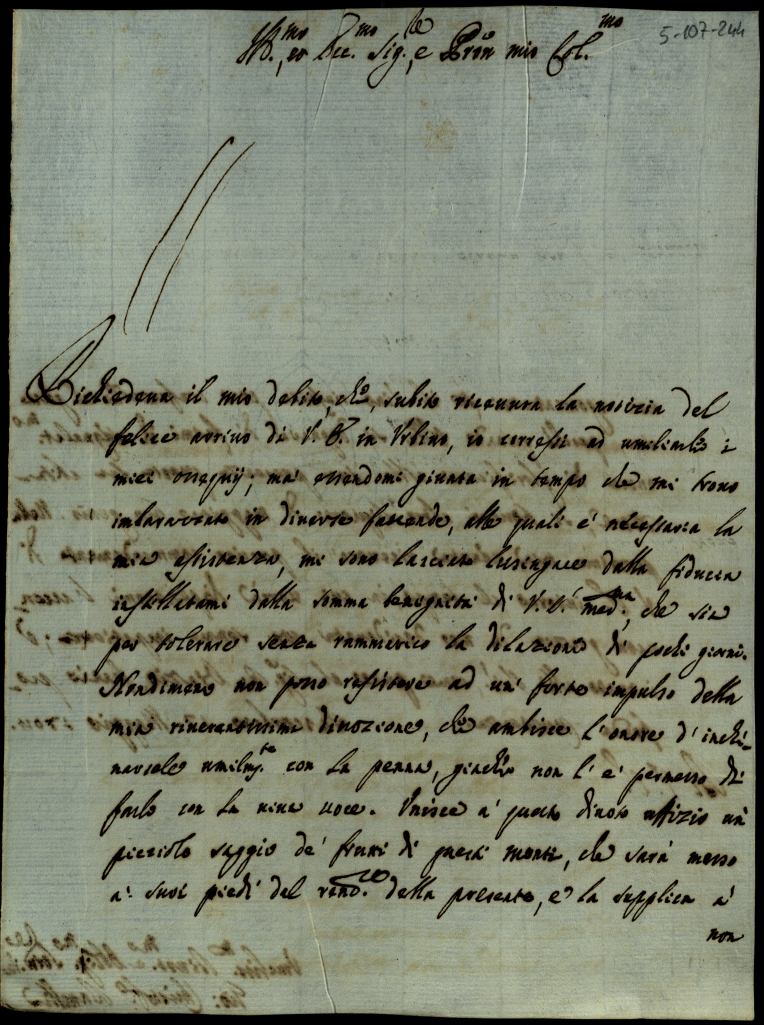 5-107-244
Ill.mo, ed Ecc.mo Sig.re, e Prōn mio Col.mo
Richiedeva il mio debito, che, subito ricevuta la notizia del
felice arrivo di V. E. in Urbino, io corressi ad umiliarle i
miei ossequij; mà essendomi giunta in tempo che mi trovo
imbarazzato in diverse faccende, alle quali è necessaria la
mia assistenza, mi sono lasciato lusingare dalla fiducia
instillatami dalla somma benignità di V. E. med.ma, che sia
per tolerare senza rammarico la dilazione di pochi giorni.
Nondimeno non posso resistere ad un' forte impulso della
mia riverentissima divozione, che ambisce l'onore d'inchi-
narsele umilm.te con la penna, giachè non l'è permesso di
farlo con la viva voce. Unisce à questo divoto uffizio un'
picciolo saggio de' frutti di questi monti, che sarà messo
a' suoi piedi dal rend.re della presente, e la supplica à
non